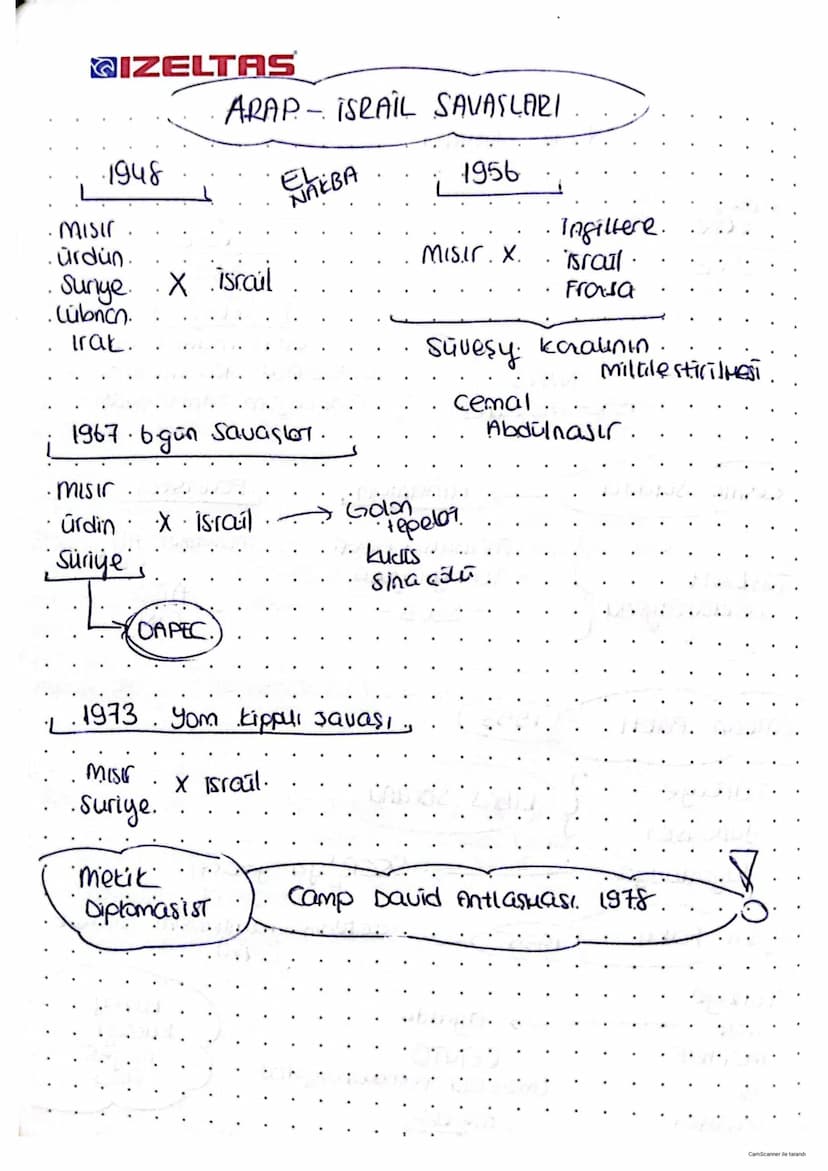 IZELTAS
ARAP - İSRAİL SAVAŞLARI
1948
EL
NAKBA
Mısır
Ürdün
Suriye
Lübnan
Irak
X İsrail
1956
Mısır X
İngiltere
İsrail
Fransa
Süveşy kanalının
millileştirilmesi
Cemal
Abdülnasır
1967 6 gün Savaşları
Mısır
Ürdin X İsrail → Golan
tepeleri
Suriye
Kudüs
Sina çölü
OAPEC
1973 Yom Kippur savaşı
Mısır
Suriye
X İsrail
Mekik
Diplomasisi
Camp David Antlaşması. 1978
!
CamScanner ile tarandı